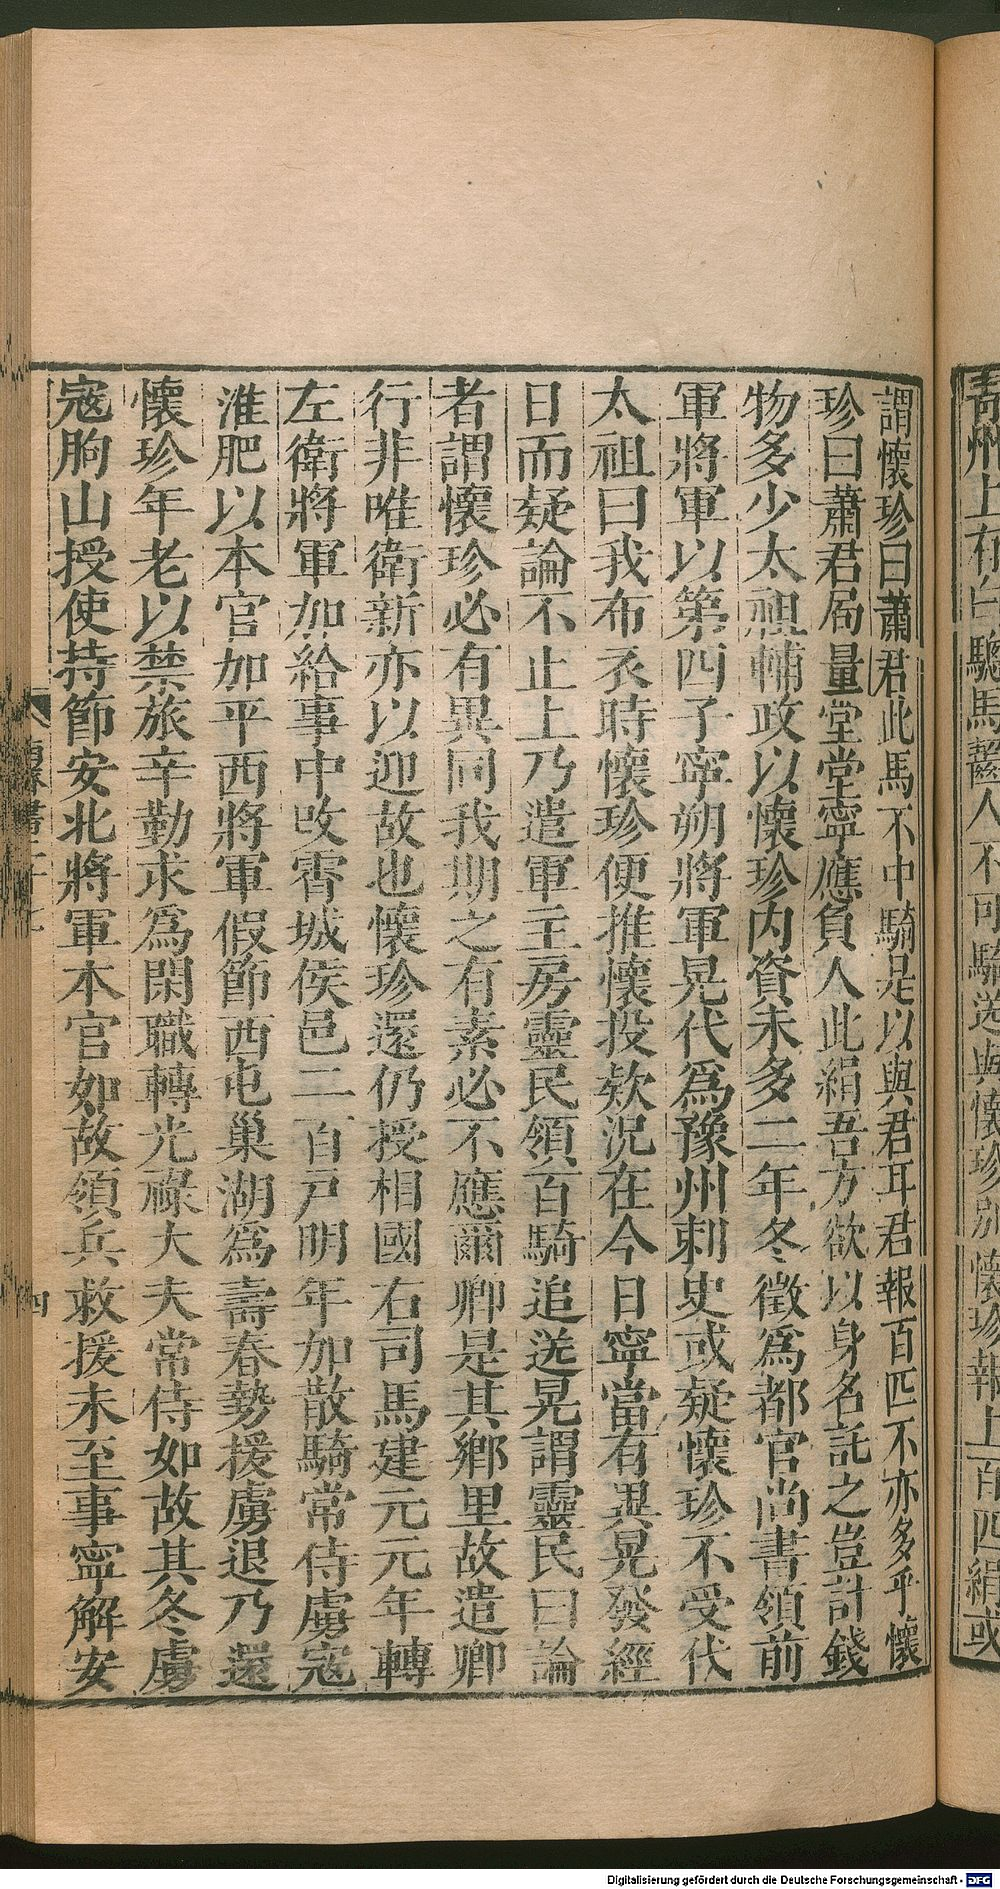 謂懷珍曰蕭君此馬不中騎是以與君耳君報百匹不亦多乎懷
珍曰蕭君局量堂堂寧應負人此絹吾方欲以身名託之豈計錢
物多少太祖輔政以懷珍內資未多二年冬徵爲都官尚書領前
軍將軍以第四子寧朔將軍晃代爲豫州刺史或疑懷珍不受代
太祖曰我布衣時懷珍便推懷投欵況在今日寧當有異晃發經
日而疑論不止上乃遣軍主房靈民領百騎追送晃謂靈民曰論
者謂懷珍必有異同我期之有素必不應爾卿是其鄉里故遣卿
行非唯衛新亦以迎故也懷珍還仍授相國右司馬建元元年轉
左衛將軍加給事中改霄城侯邑二百戶明年加散騎常侍虜寇
淮肥以本官加平西將軍假節西屯巢湖爲壽春勢援虜退乃還
懷珍年老以禁旅辛勤求爲閑職轉光祿大夫常侍如故其冬虜
寇朐山授使持節安北將軍本官如故領兵救援未至事寧解安
Digitalisierung gefördert durch die Deutsche Forschungsgemeinschaft - DFG